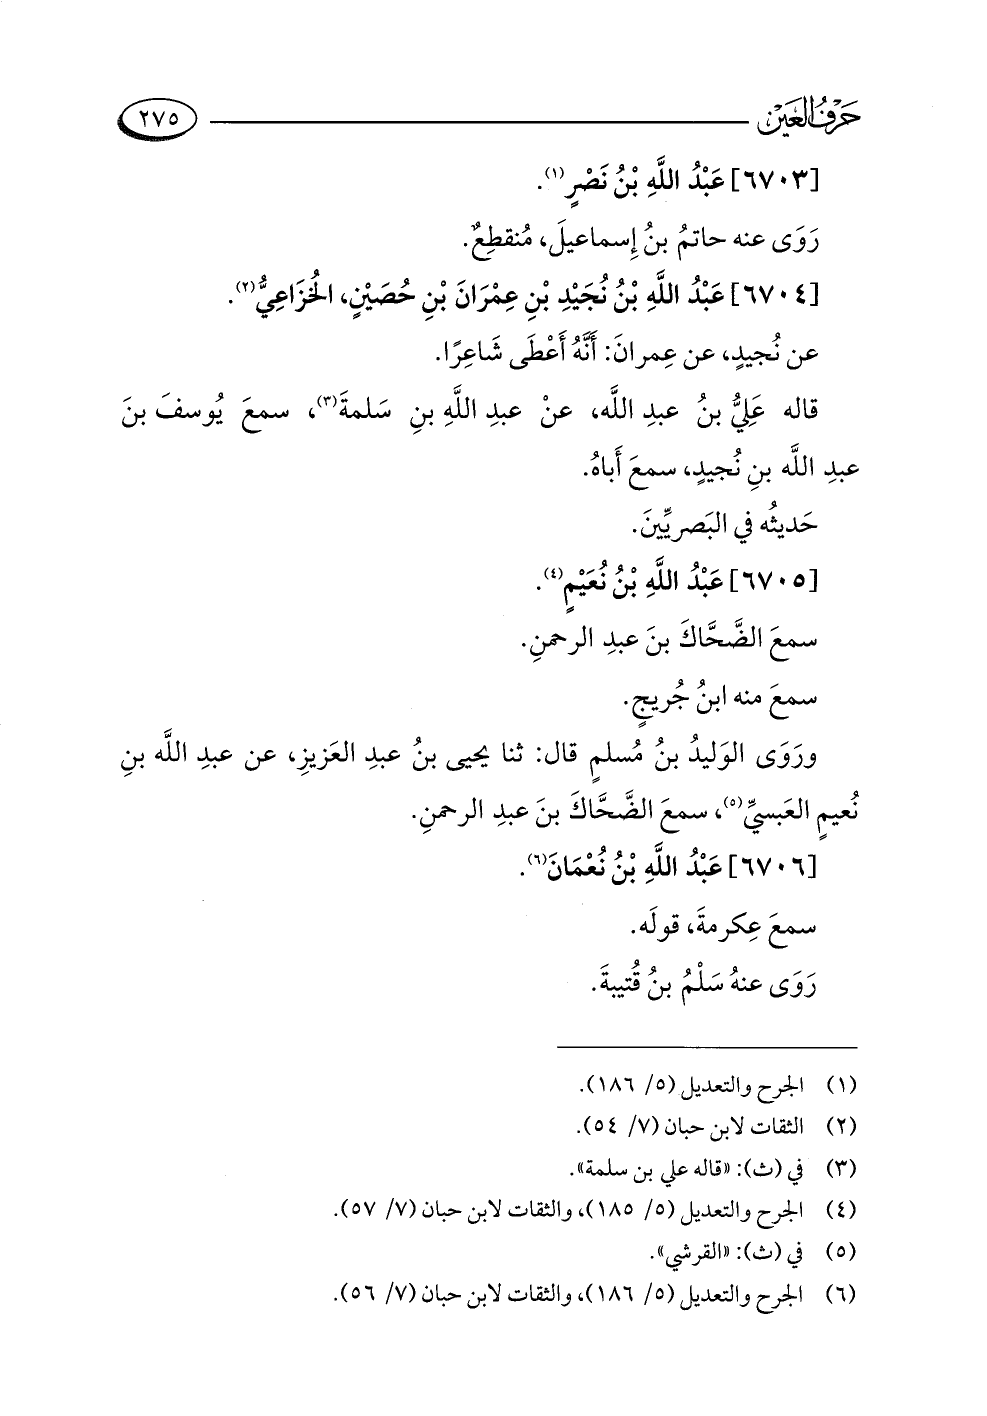 حَرْفُ العَيْن
٢٧٥
[٦٧٠٣] عَبْدُ اللَّهِ بْنُ نَصْرٍ(١).
رَوَى عنه حاتمُ بنُ إِسماعيلَ، مُنقطِعٌ.
[٦٧٠٤] عَبْدُ اللَّهِ بْنُ نُجَيْدِ بْنِ عِمْرَانَ بْنِ حُصَيْنٍ، الخُزَاعِيُّ(٢).
عن نُجيدٍ، عن عِمرانَ: أَنَّهُ أَعْطَى شَاعِرًا.
قاله عَلِيُّ بنُ عبدِ اللَّه، عنْ عبدِ اللَّهِ بنِ سَلمةَ(٣)، سمعَ يُوسفَ بنَ
عبدِ اللَّه بنِ نُجيدٍ، سمعَ أَباهُ.
حَديثُه في البَصريِّينَ.
[٦٧٠٥] عَبْدُ اللَّهِ بْنُ نُعَيْمٍ(٤).
سمعَ الضَّحَّاكَ بنَ عبدِ الرحمنِ.
سمعَ منه ابنُ جُريجٍ.
ورَوَى الوَليدُ بنُ مُسلمٍ قال: ثنا يحيى بنُ عبدِ العَزيزِ، عن عبدِ اللَّه بنِ
نُعيمٍ العَبسيِّ(٥)، سمعَ الضَّحَّاكَ بنَ عبدِ الرحمنِ.
[٦٧٠٦] عَبْدُ اللَّهِ بْنُ نُعْمَانَ(٦).
سمعَ عِكرمةَ، قولَه.
رَوَى عنهُ سَلْمُ بنُ قُتيبةَ.
(١) الجرح والتعديل (٥/ ١٨٦).
(٢) الثقات لابن حبان (٧/ ٥٤).
(٣) في (ث): «قاله علي بن سلمة».
(٤) الجرح والتعديل (٥/ ١٨٥)، والثقات لابن حبان (٧/ ٥٧).
(٥) في (ث): «القرشي».
(٦) الجرح والتعديل (٥/ ١٨٦)، والثقات لابن حبان (٧/ ٥٦).